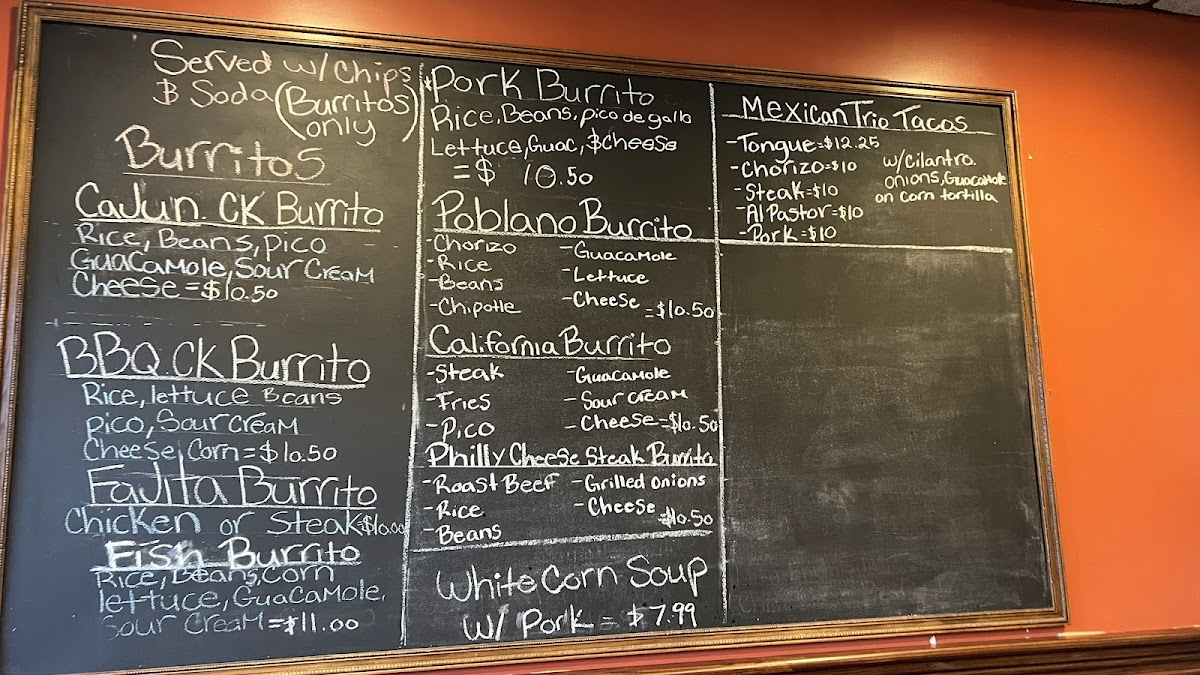 Served w/Chips
& Soda (Burritos only)
Burritos
Cajun. CK Burrito
Rice, Beans, pico
Guacamole, Sour Cream
Cheese = $10.50
BBQ. CK Burrito
Rice, lettuce Beans
pico, Sour Cream
Cheese, Corn = $10.50
Fajita Burrito
Chicken or Steak = $10.00
Fish Burrito
Rice, Beans, Corn
lettuce, Guacamole,
Sour Cream = $11.00
Pork Burrito
Rice, Beans, pico de gallo
Lettuce, Guac, & Cheese
= $ 10.50
Poblano Burrito
-Chorizo
-Rice
-Beans
-Chipotle
-Guacamole
-Lettuce
-Cheese = $10.50
California Burrito
-Steak
-Fries
-Pico
-Guacamole
-Sour Cream
-Cheese = $10.50
Philly Cheese Steak Burrito
-Roast Beef
-Rice
-Beans
-Grilled Onions
-Cheese = $10.50
White Corn Soup
w/ Pork = $7.99
Mexican Trio Tacos
-Tongue = $12.25
-Chorizo = $10
-Steak = $10
-Al Pastor = $10
-Pork = $10
w/Cilantro.
onions, Guacamole
on corn tortilla